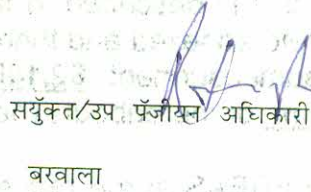 सयुँक्त/उप पॅजीयन अधिकारी
बरवाला